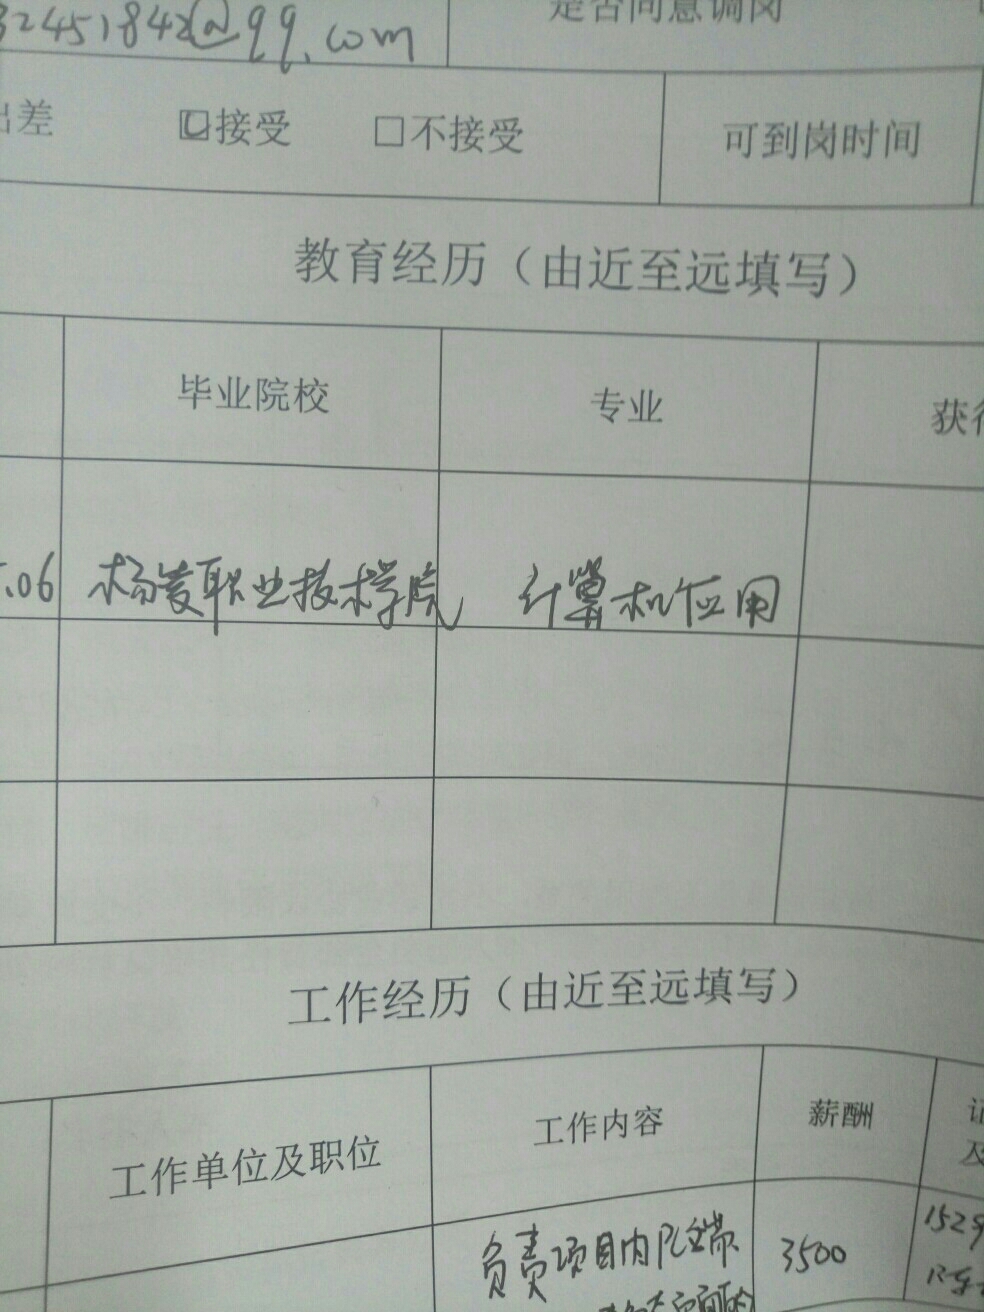 32451842@qq.com
是否同意调岗
出差 接受 不接受 可到岗时间
教育经历（由近至远填写）
毕业院校 专业 获得
.06 杨凌职业技术学院 计算机应用
工作经历（由近至远填写）
工作单位及职位 工作内容 薪酬
及
负责项目内PC端 3500 152
页面的